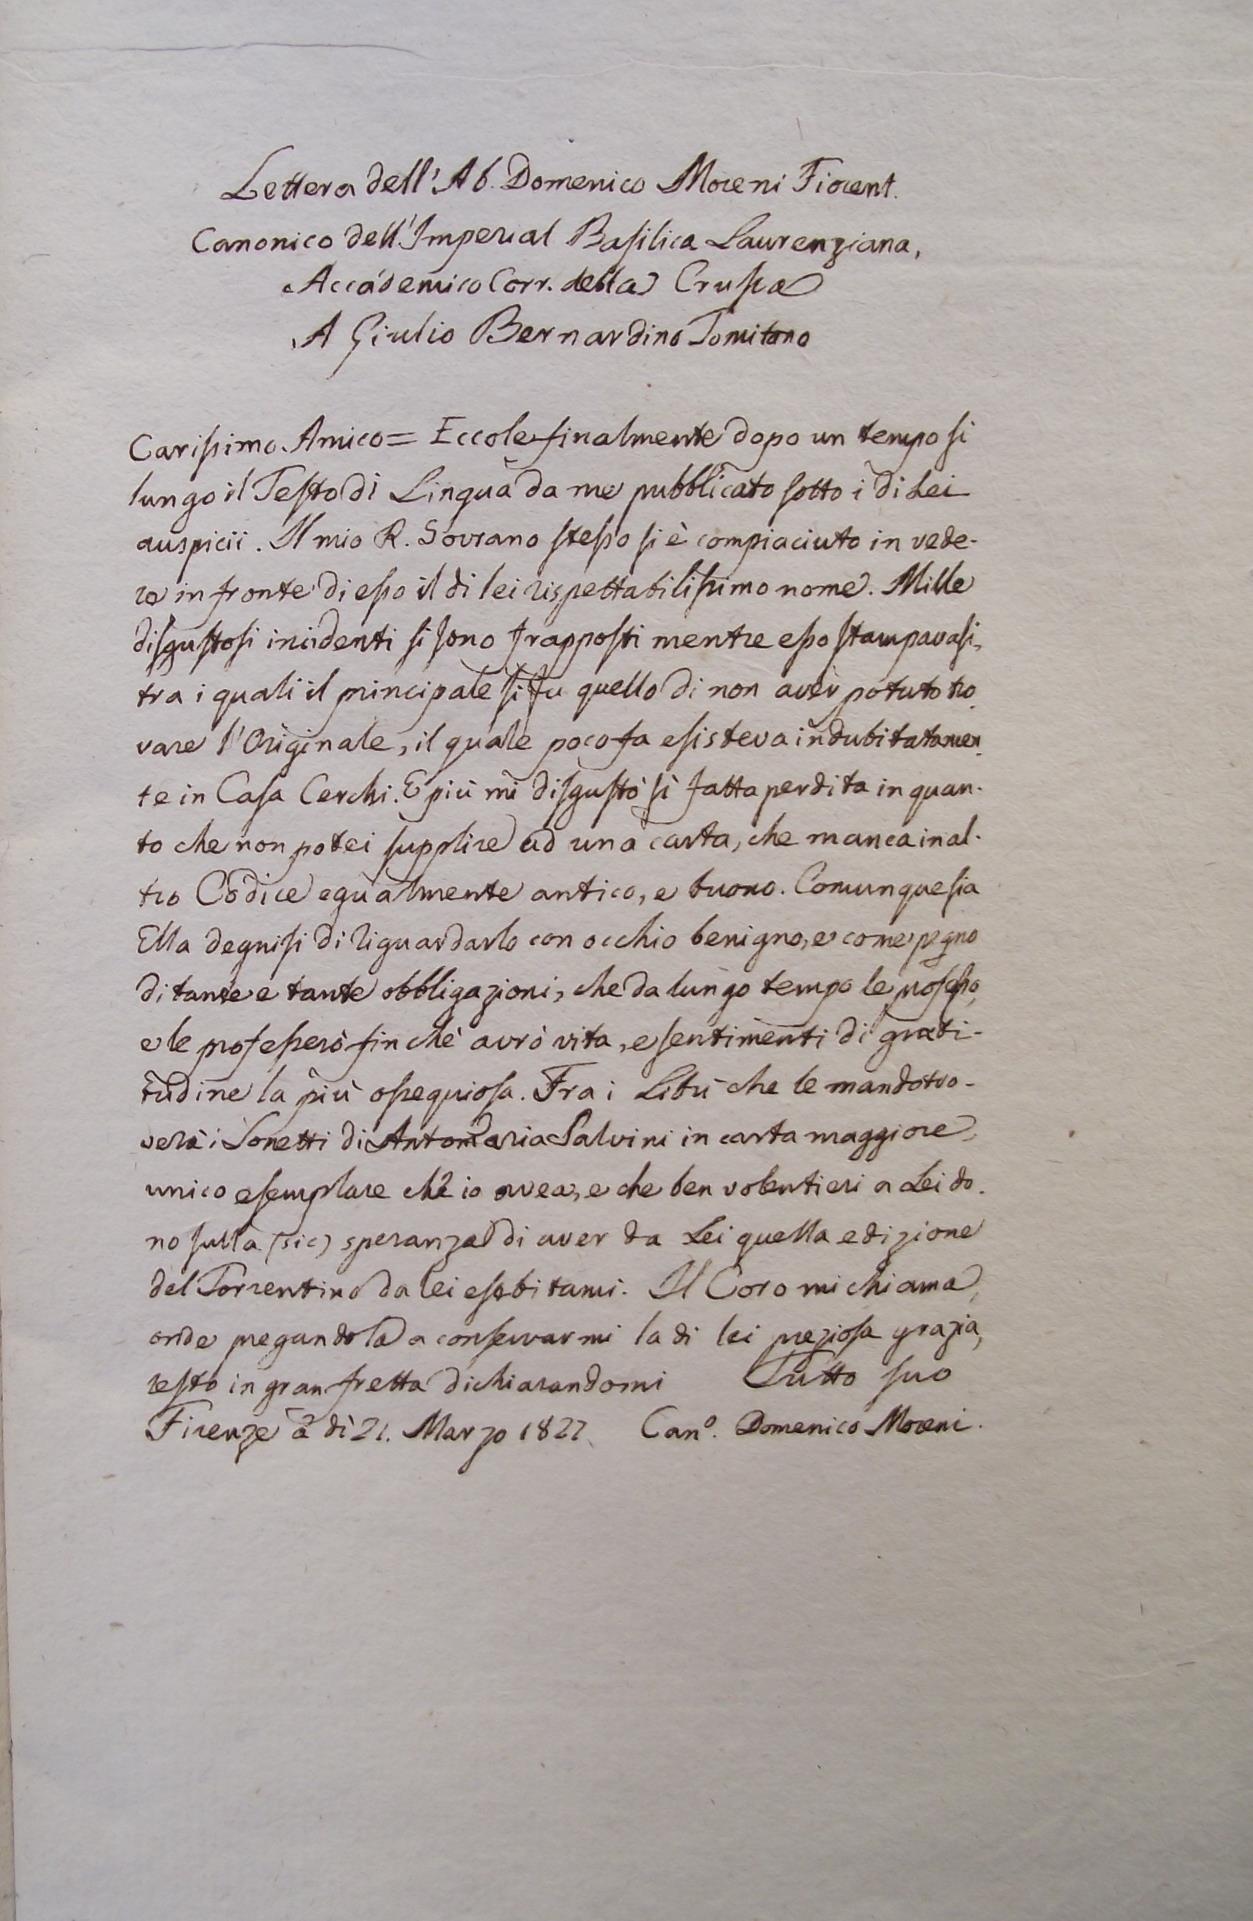 Lettera dell'Ab. Domenico Moreni Fiorent.
Canonico dell'Imperial Basilica Laurenziana,
Accademico Corr. della Crusca
A Giulio Bernardino Tomitano
Carissimo Amico = Eccole finalmente dopo un tempo si
lungo il Testo di Lingua da me pubblicato sotto i di Lei
auspicii. Il mio R. Sovrano stesso si è compiaciuto in vede-
re in fronte di esso il di lei rispettabilissimo nome. Mille
disgustosi incidenti si sono frapposti mentre esso stampavasi,
tra i quali il principale si fu quello di non aver potuto tro
vare l'Originale, il quale poco fa esisteva indubitatamen
te in Casa Cerchi. E più mi disgustò sì fatta perdita in quan-
to che non potei supplire ad una carta, che manca in al-
tro Codice egualmente antico, e buono. Comunque sia
Ella degnisi di riguardarlo con occhio benigno, e come pegno
di tante e tante obbligazioni, che da lungo tempo le professo,
e le professerò finchè avrò vita, e sentimenti di grati-
tudine la più ossequiosa. Fra i Libri che le mando tro-
verà i Sonetti di Antonmaria Salvini in carta maggiore,
unico esemplare ch'io avea, e che ben volentieri a Lei do-
no sulla (sic) speranza di aver da Lei quella edizione
del Torrentino da lei esibitami. Il Coro mi chiama,
onde pregandola a conservarmi la di lei preziosa grazia,
resto in gran fretta dichiarandomi Tutto suo
Firenze a dì 21. Marzo 1822 Can.º Domenico Moreni.